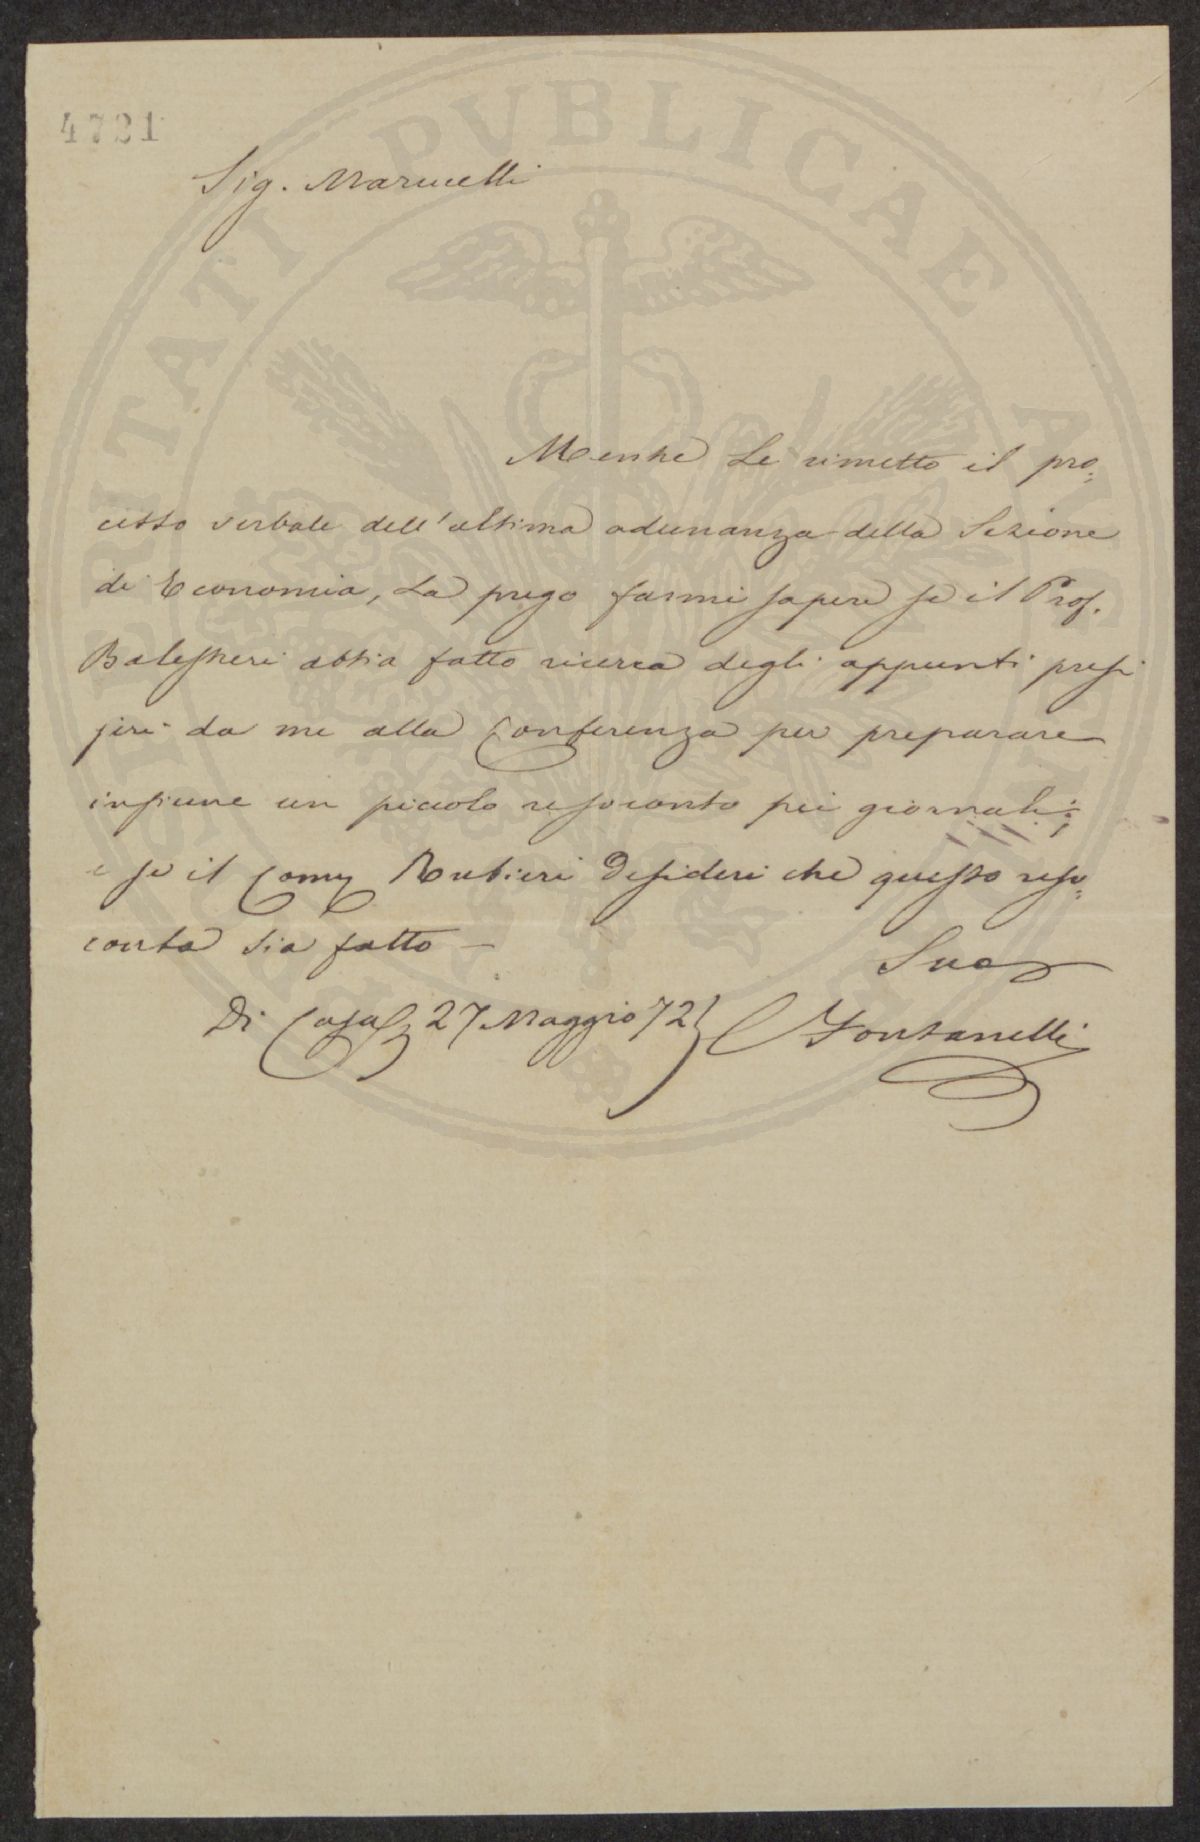 4721
Sig. Marucelli
Mentre Le rimetto il pro=
cesso verbale dell'ultima adunanza della Sezione
di Economia, La prego farmi sapere se il Prof.
Balestreri abbia fatto ricerca degli appunti presi
jeri da me alla Conferenza per preparare
insieme un piccolo resoconto pei giornali;
e se il Comm Rubieri desideri che questo reso=
conto sia fatto —
Suo
Di Casa 27 Maggio 72 C Fontanelli
PVBLICAE